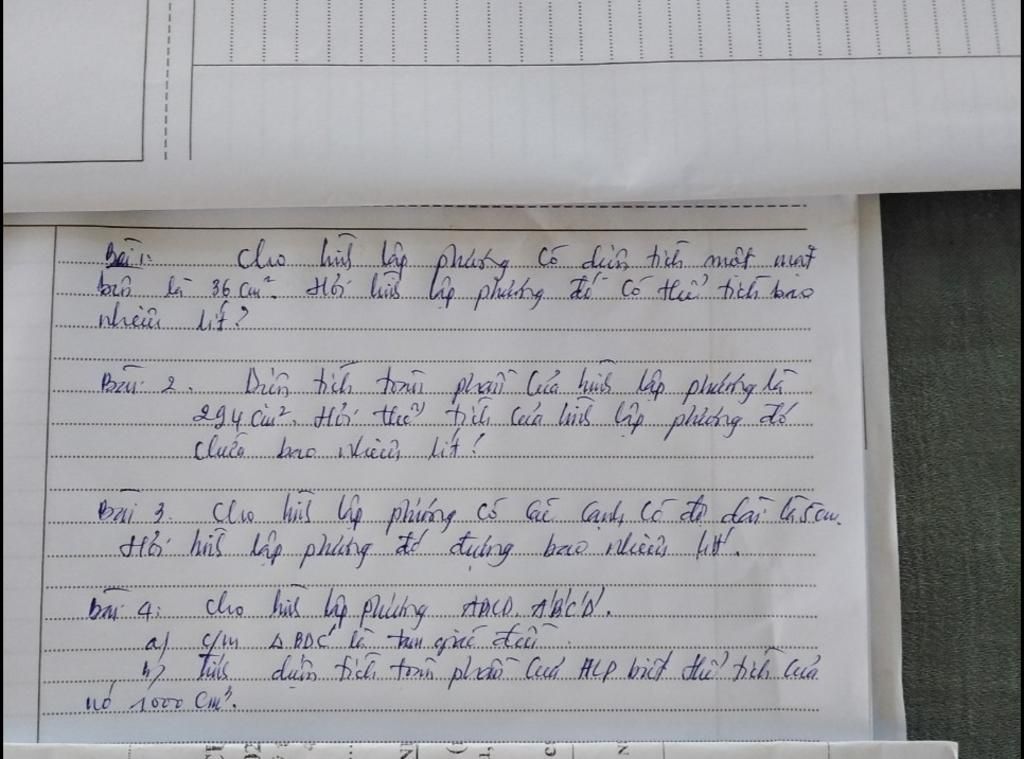 Bài 1: Cho hình lập phương có diện tích một mặt
bên là 36 cm². Hỏi hình lập phương đó có thể tích bao
nhiêu lít?
Bài 2. Diện tích toàn phần của hình lập phương là
294 cm². Hỏi thể tích của hình lập phương đó
chứa bao nhiêu lít!
Bài 3. Cho hình lập phương có các cạnh có độ dài là 5cm.
Hỏi hình lập phương đó đựng bao nhiêu lít.
Bài 4: Cho hình lập phương ABCD. A'B'C'D'.
a) C/m Δ BDC' là tam giác đều.
b) Tính diện tích toàn phần của HLP biết thể tích của
nó 1000 cm³.